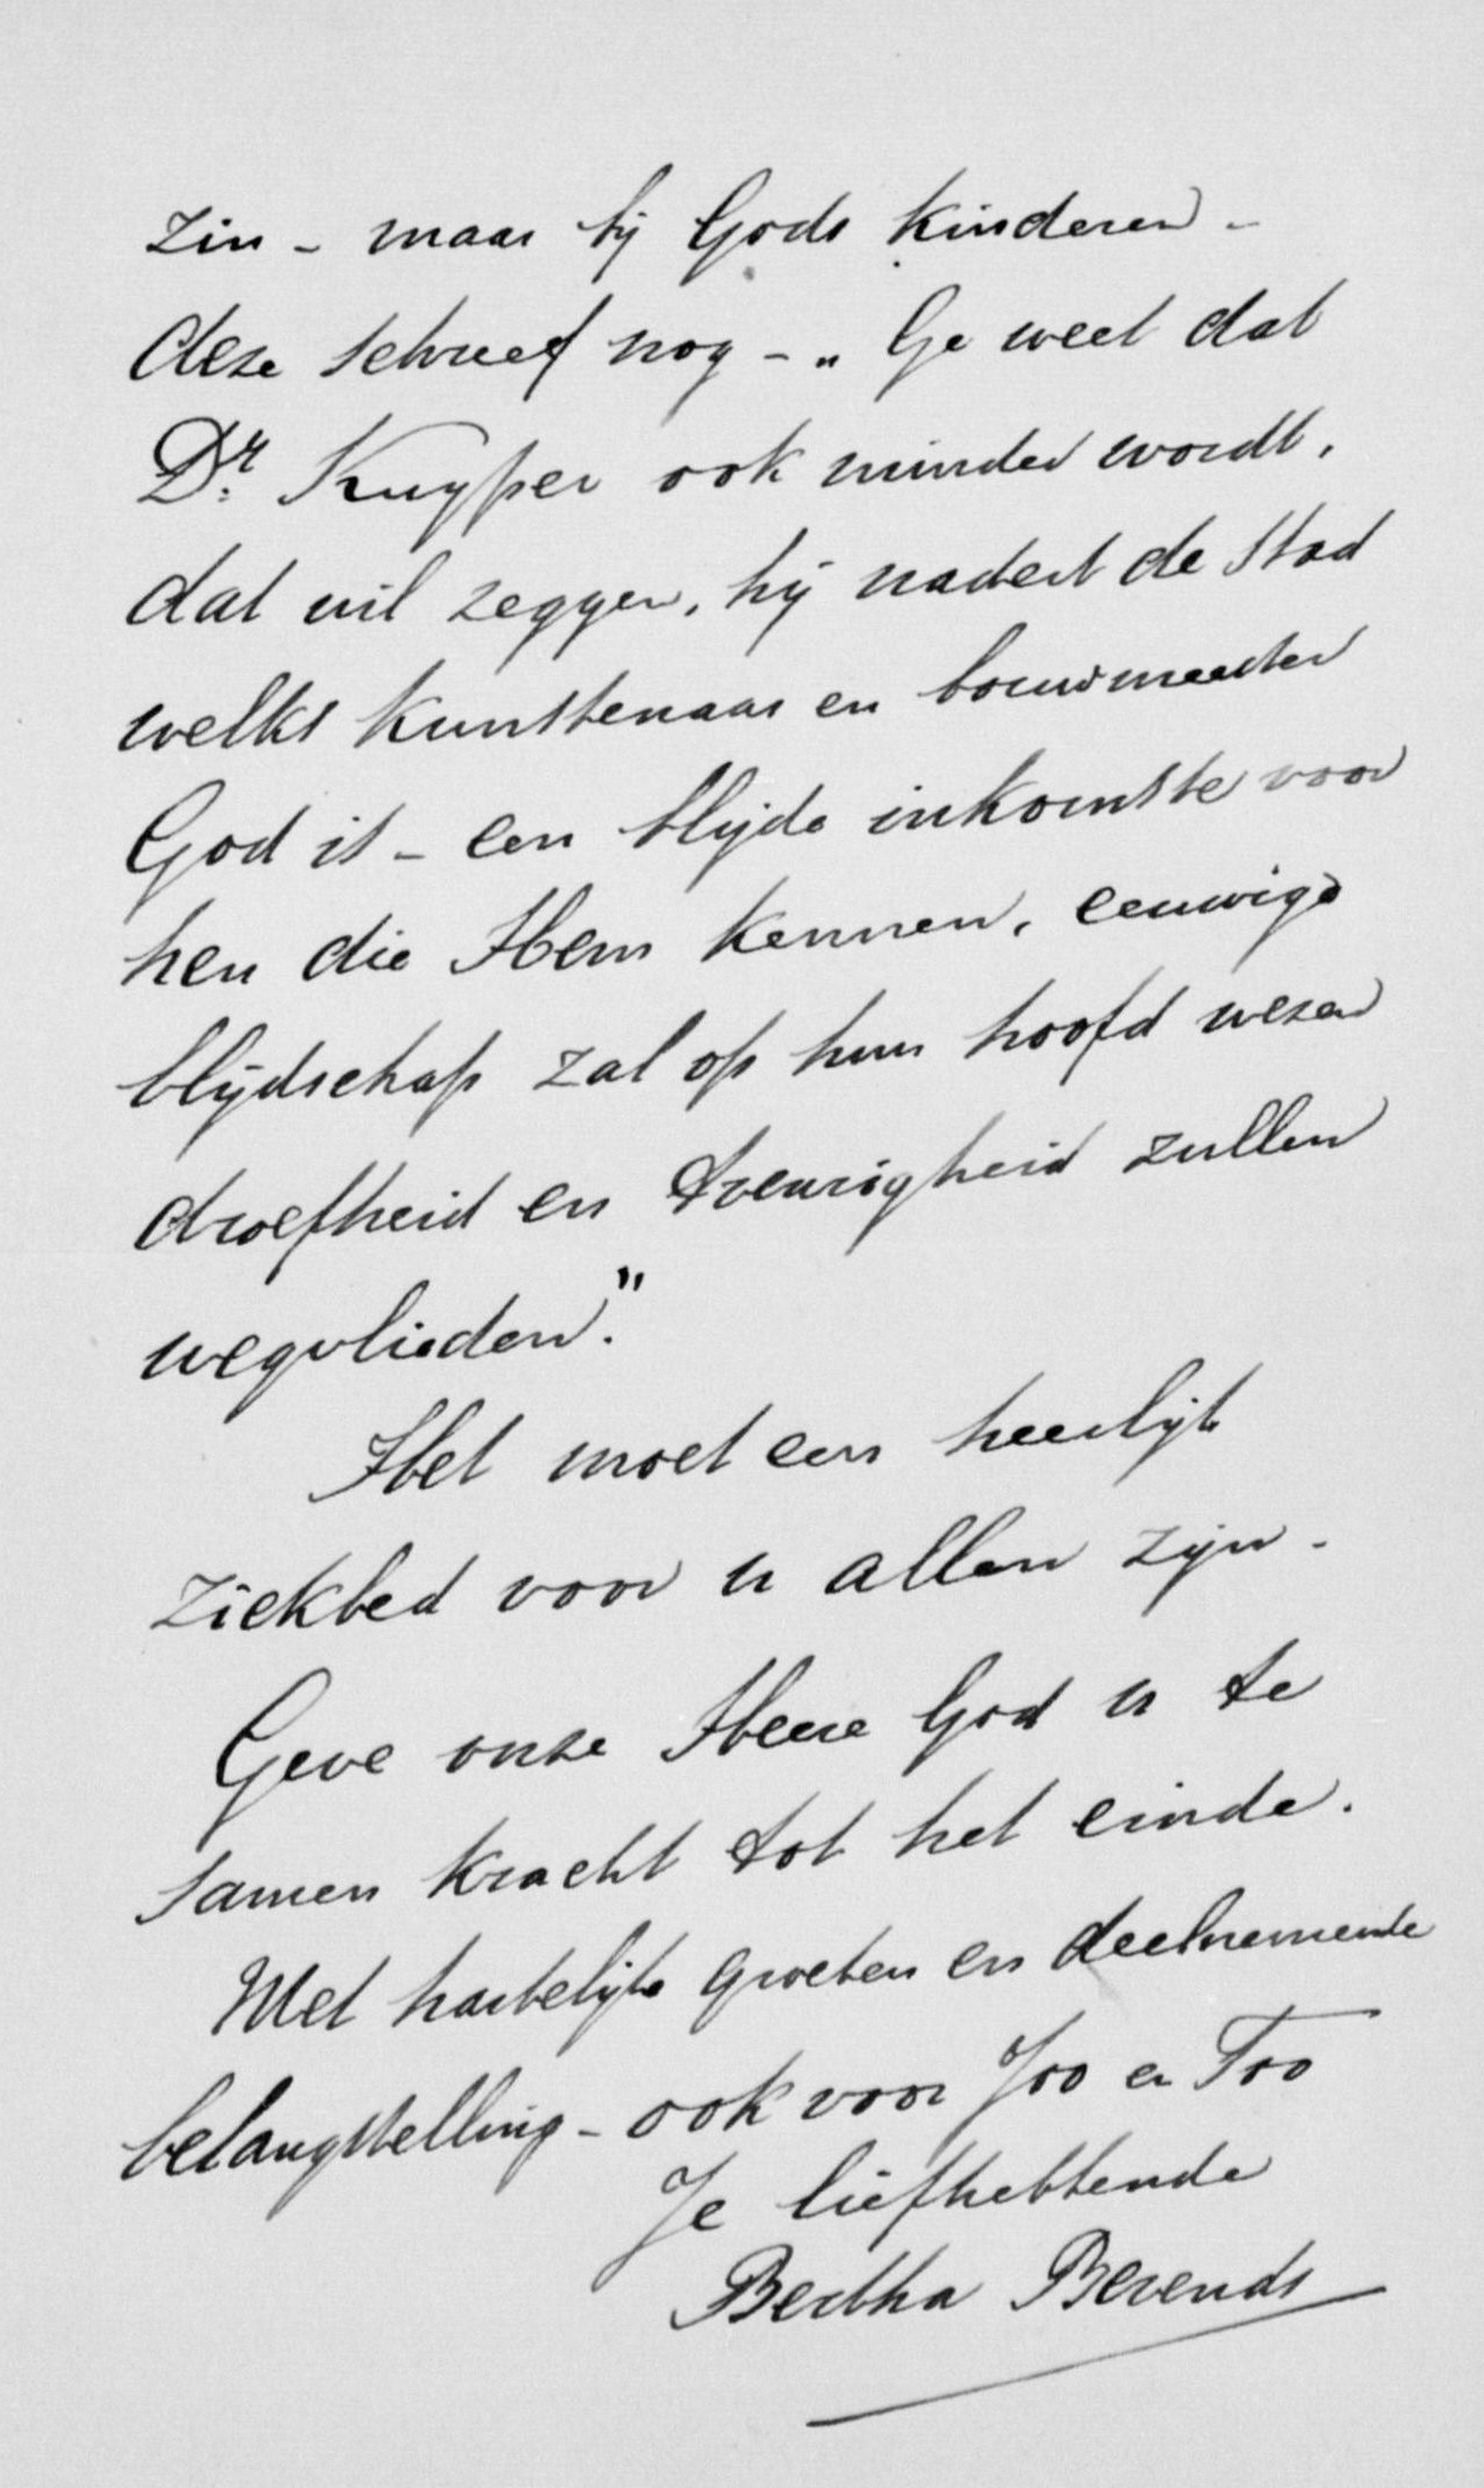 zin - maar bij Gods kinderen -
deze schreef nog - „ Ge weet dat
Dr. Kuyper ook minder wordt,
dat wil zeggen, hij nadert de stad
welks kunstenaar en bouwmeester
God is - een blijde inkomste voor
hen die Hem kennen, eeuwige
blijdschap zal op hun hoofd wezen
droefheid en treurigheid zullen
wegvlieden."
Het moet een heerlijk
ziekbed voor u allen zijn -
Geve onze Heere God u te
samen kracht tot het einde.
Met hartelijke groeten en deelnemende
belangstelling - ook voor Joo en Too
Je liefhebbende
Bertha Berends